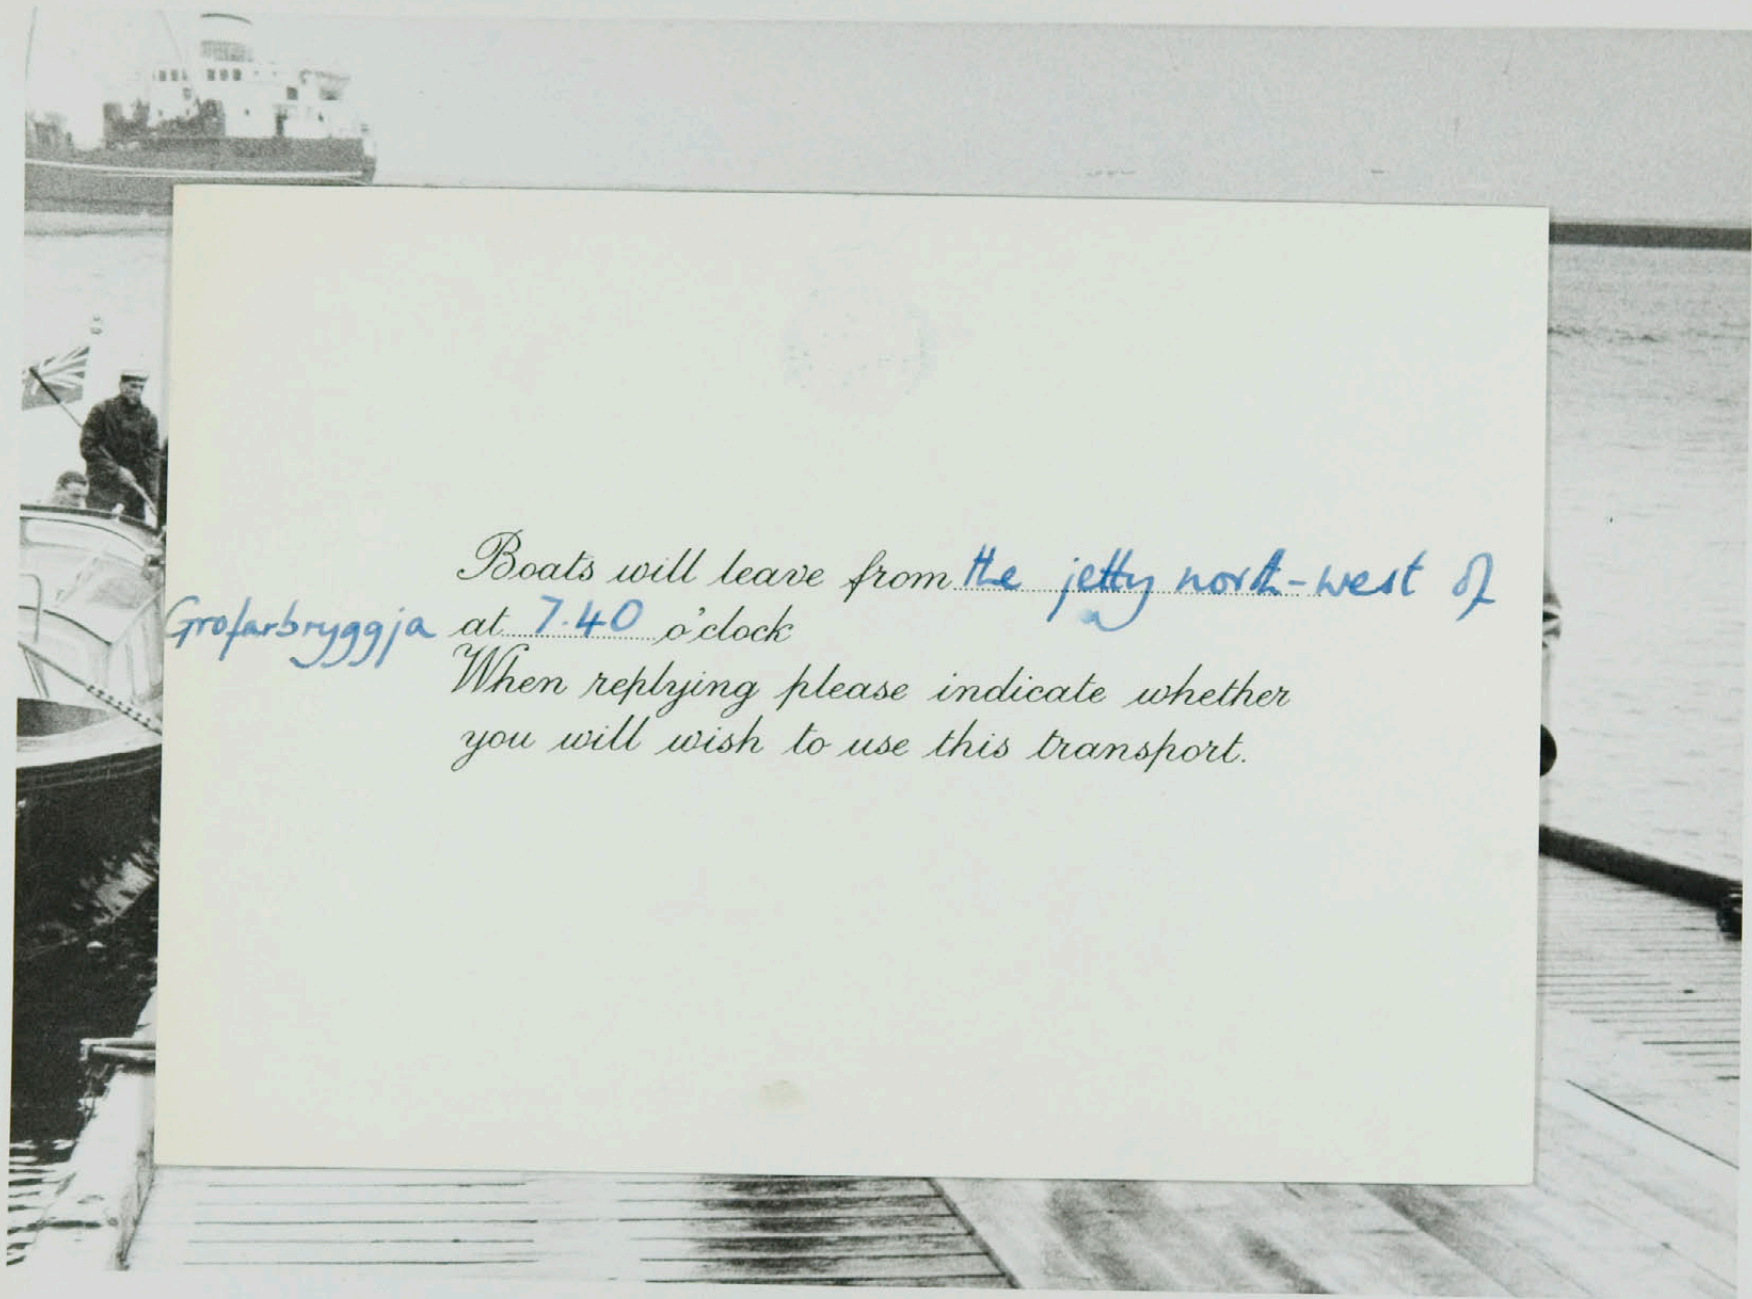 Boats will leave from the jetty north-west of
Grofarbryggja at 7.40 o'clock
When replying please indicate whether
you will wish to use this transport.